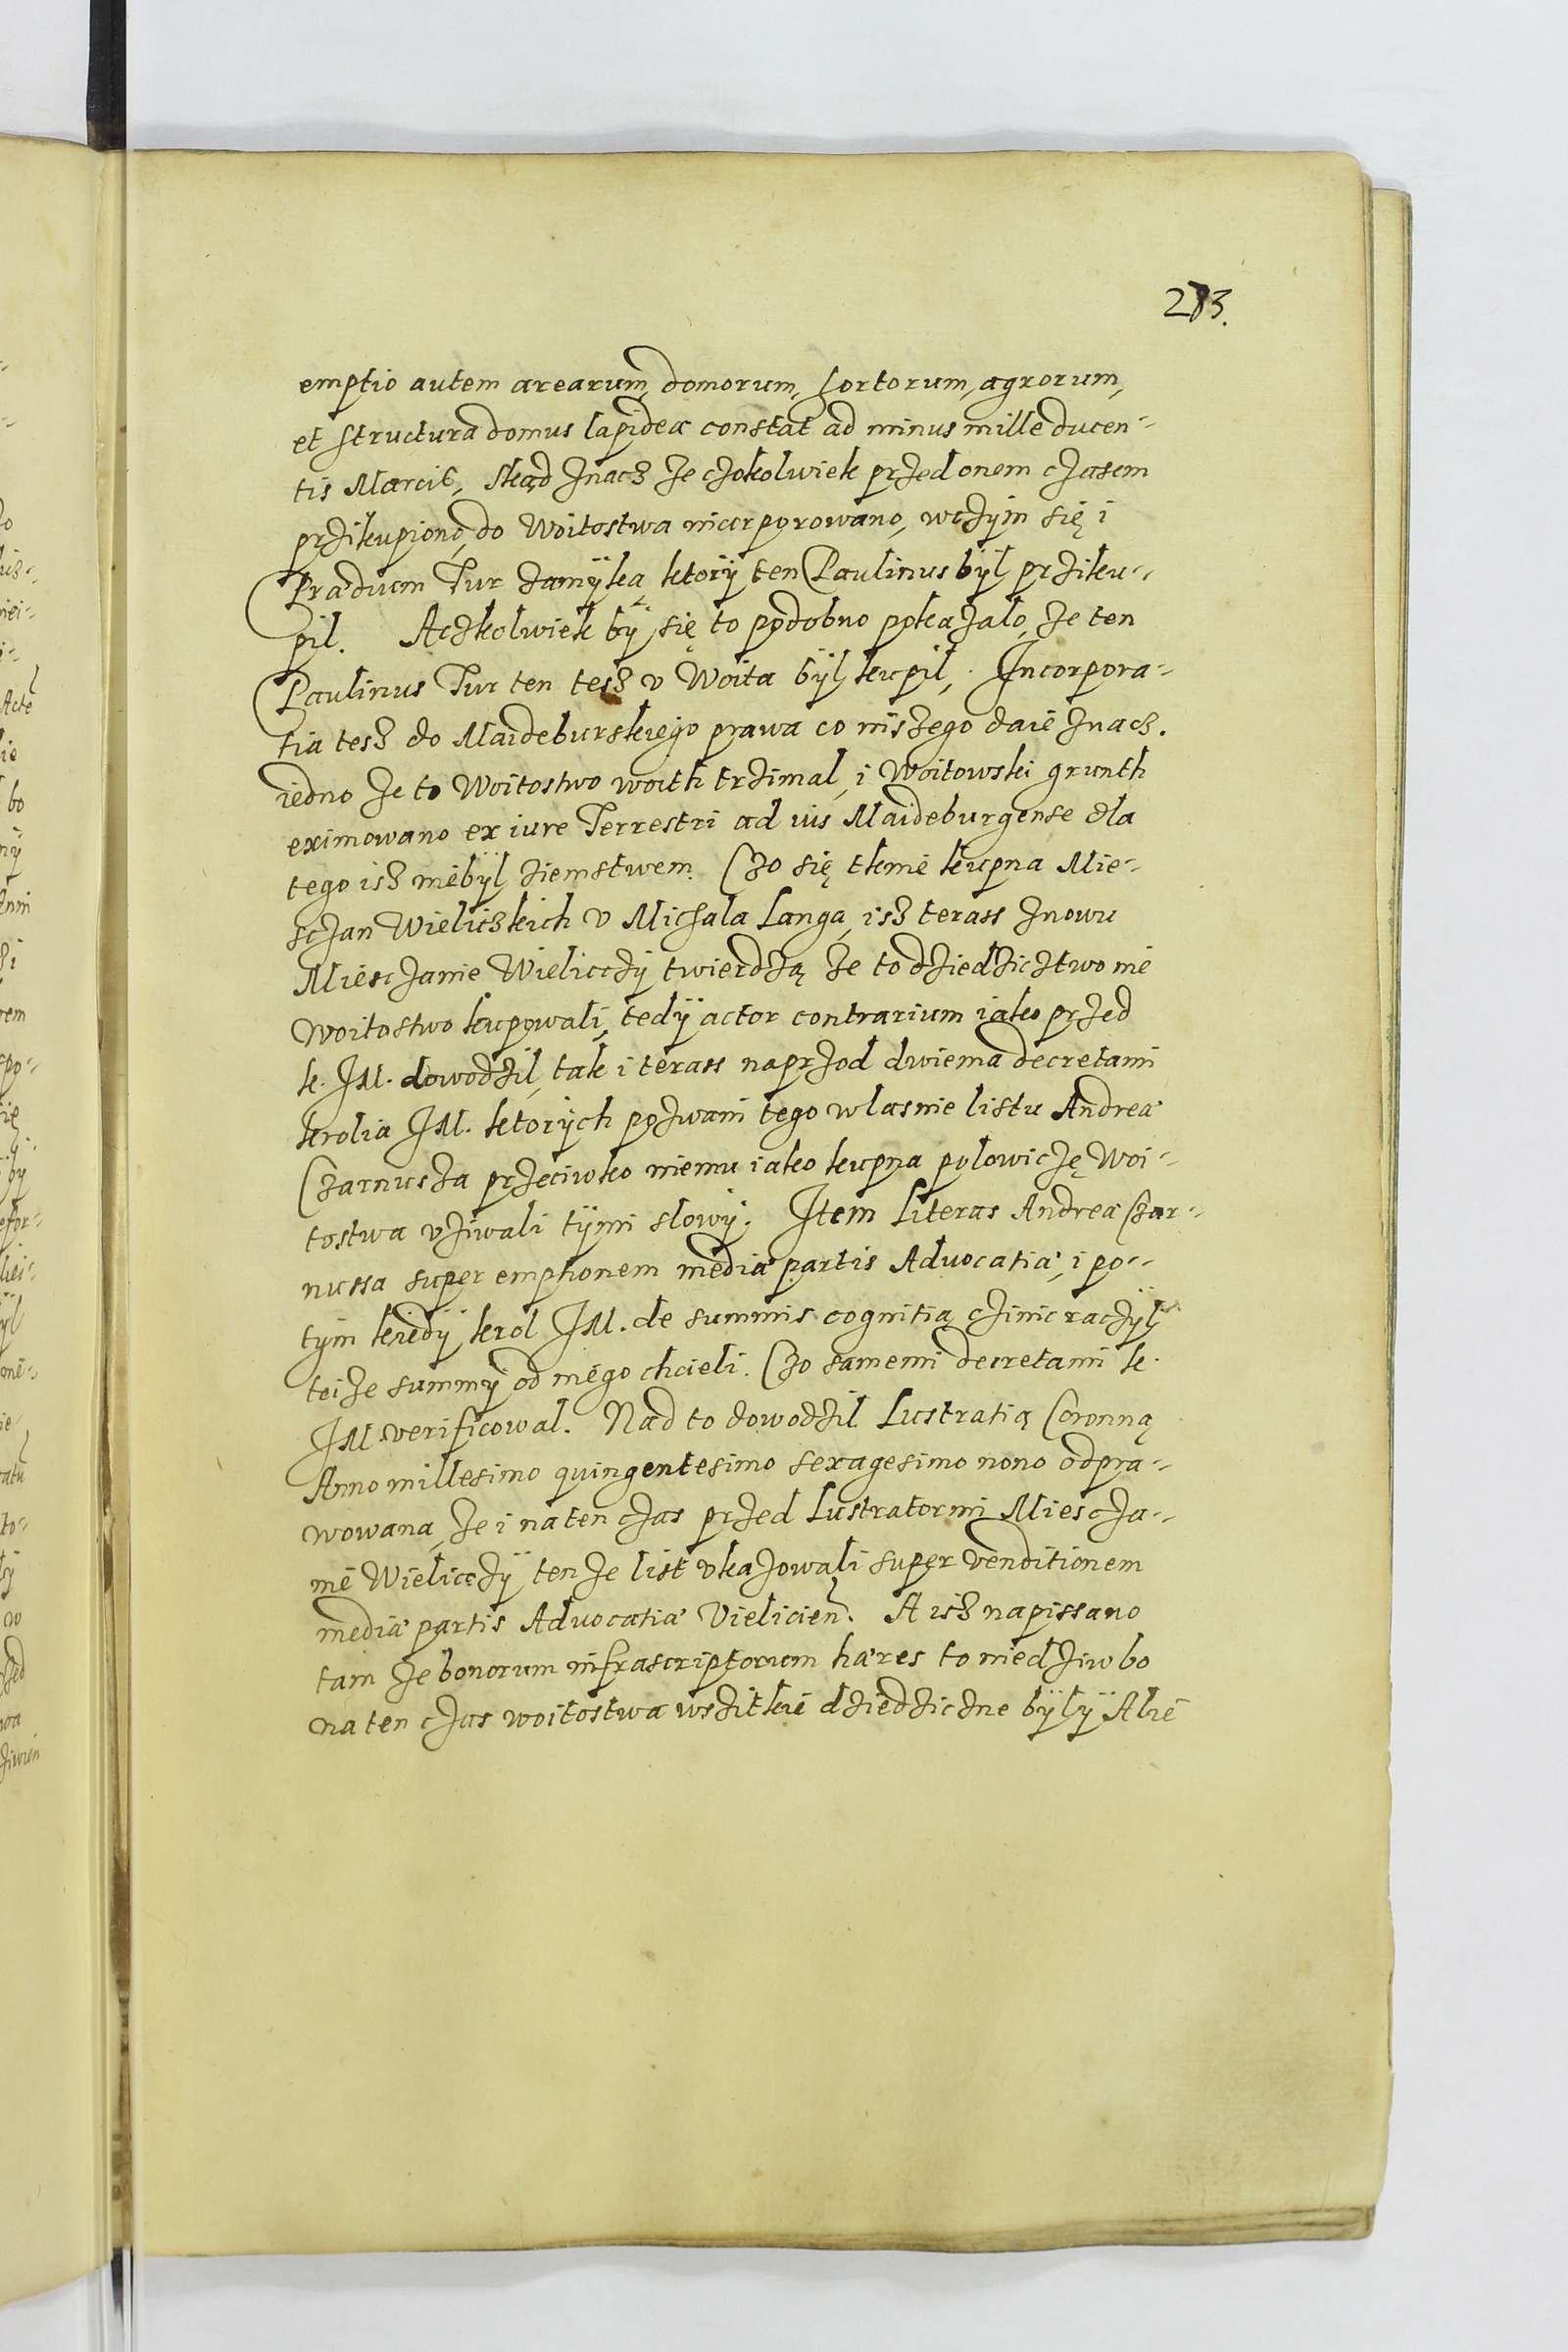 273.
emptio autem arearum, domorum, hortorum, agrorum,
et structura domus lapideæ constat ad minus mille ducen-
tis Marcis, skąd znacz że czokolwiek przed onem czasem
przikupiono, do Woitostwa incorporowano, w czÿm się i
Prædium Tur zamÿka, ktorÿ ten Paulinus bÿł przÿku-
pil. Aczkolwiek bÿ się to podobno pokazalo, że ten
Paulinus Tur ten tesz v Woita bÿł kupil, Incorpora-
tia tesz do Maideburskiego prawa co inszego daie znacz.
iedno że to Woitostwo woith trzimal, i Woitowski grunth
eximowano ex iure Terrestri ad ius Maideburgense dla
tego isz niebÿł ziemstwem. Czo się tknie kupna Mie-
sczan Wieliczkich v Michala Langa, isz terass znowu
Miesczanie Wieliczczÿ twierdzą że to dziedzicztwo nie
woitostwo kupowali, tedÿ actor contrarium iako przed
k. JM. dowodził, tak i terass naprzod dwiema decretami
krolia JM. ktorÿch pozwani tego wlasnie listu Andreæ
Czarnusza przeciwko niemu iako kupna polowiczę Woi-
tostwa vżiwali tÿmi slowÿ. Item Literas Andreæ Czar-
nussa super emptionem mediæ partis Advocatiæ, i po-
tÿm kiedÿ krol JM. de summis cognitią cżinic raczÿł
teiże summÿ od niego chcieli. Czo samemi decretami k.
JM verificowal. Nad to dowodzil Lustratią Coronną
Anno millesimo quingentesimo sexagesimo nono odpra-
wowaną, że i na ten czas przed Lustratormi Miescza-
nie Wieliczczÿ tenże list vkazowali super venditionem
mediæ partis Advocatiæ Vielicien. A isz napissano
tam że bonorum infrascriptorum hæres to nie dziw bo
na ten czas woitostwa wszitkie dziedziczne bÿlÿ Alie